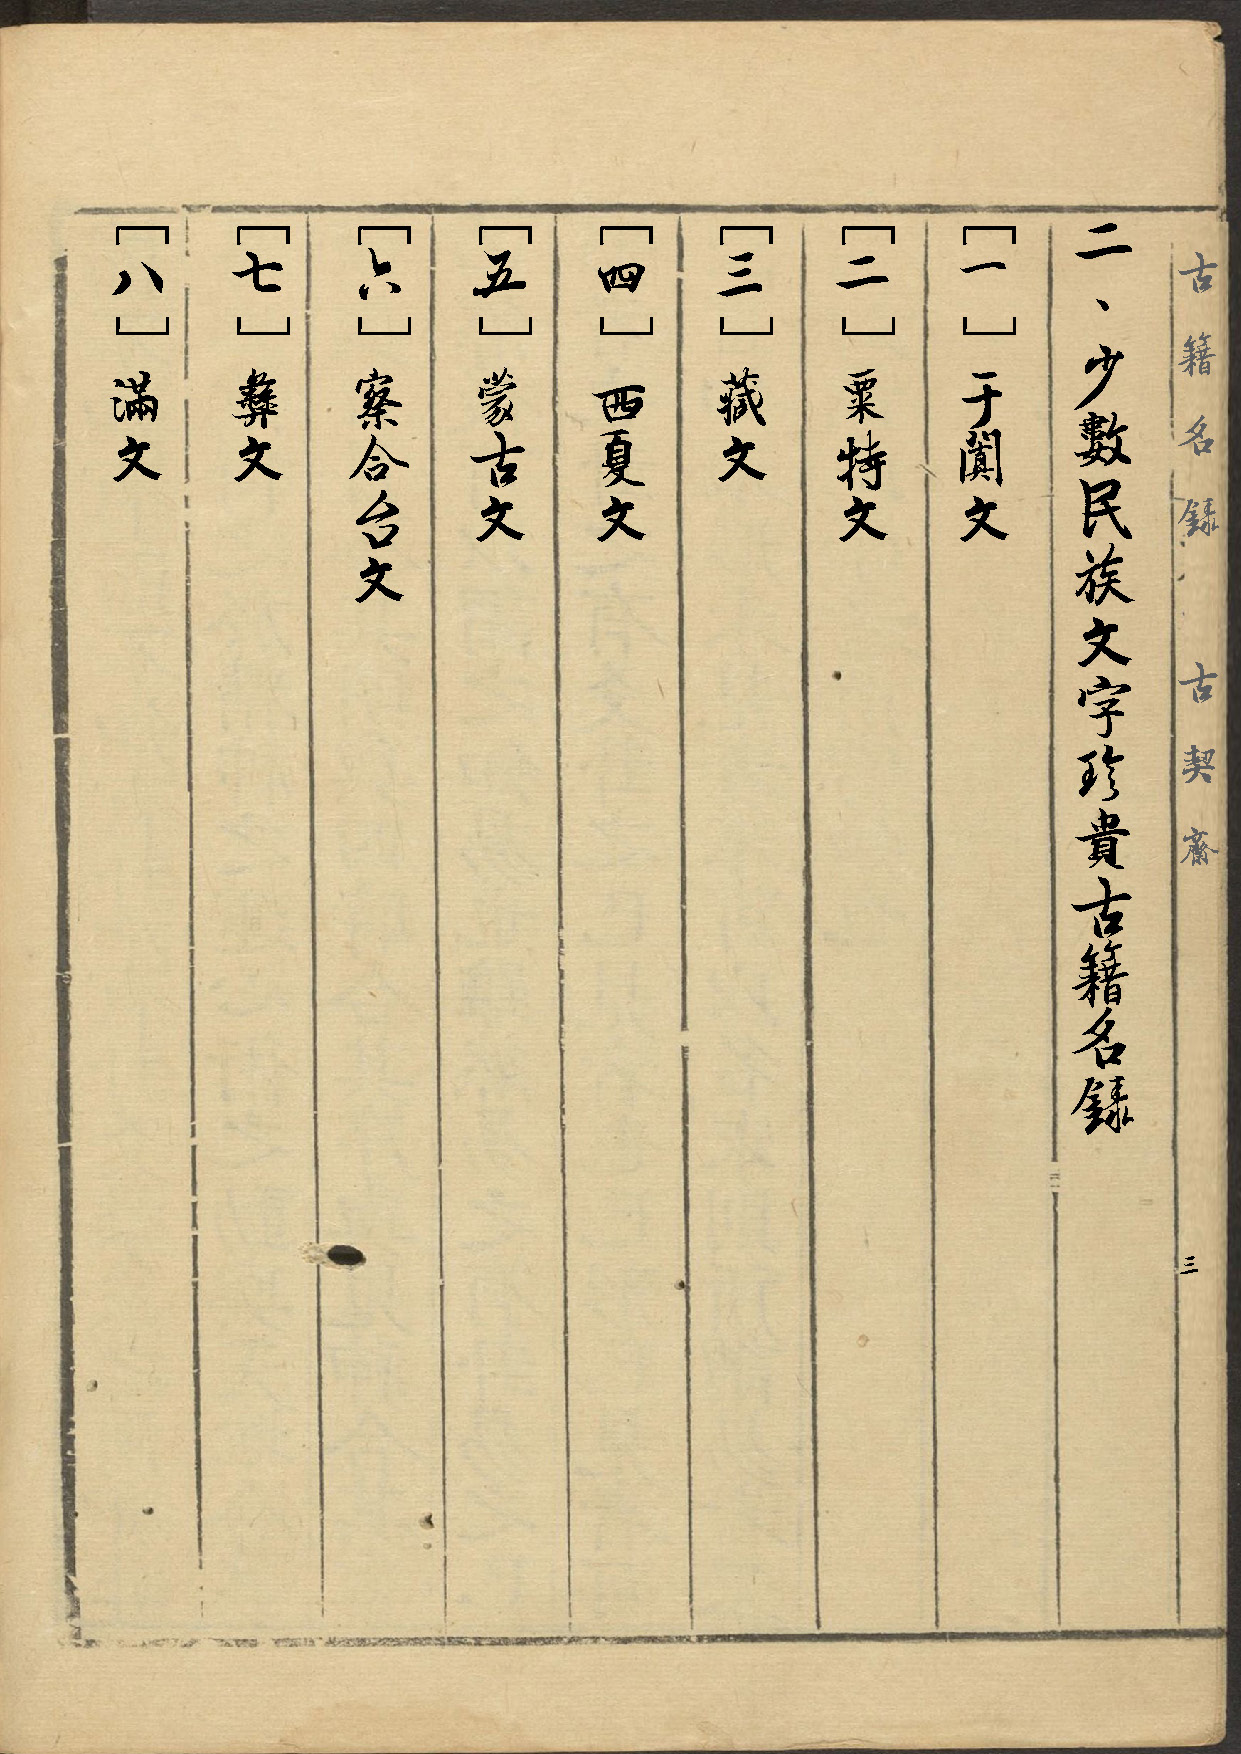 古籍名錄 古契齋
三
二、少數民族文字珍貴古籍名錄
［一］于闐文
［二］粟特文
［三］藏文
［四］西夏文
［五］蒙古文
［六］察合台文
［七］彝文
［八］滿文